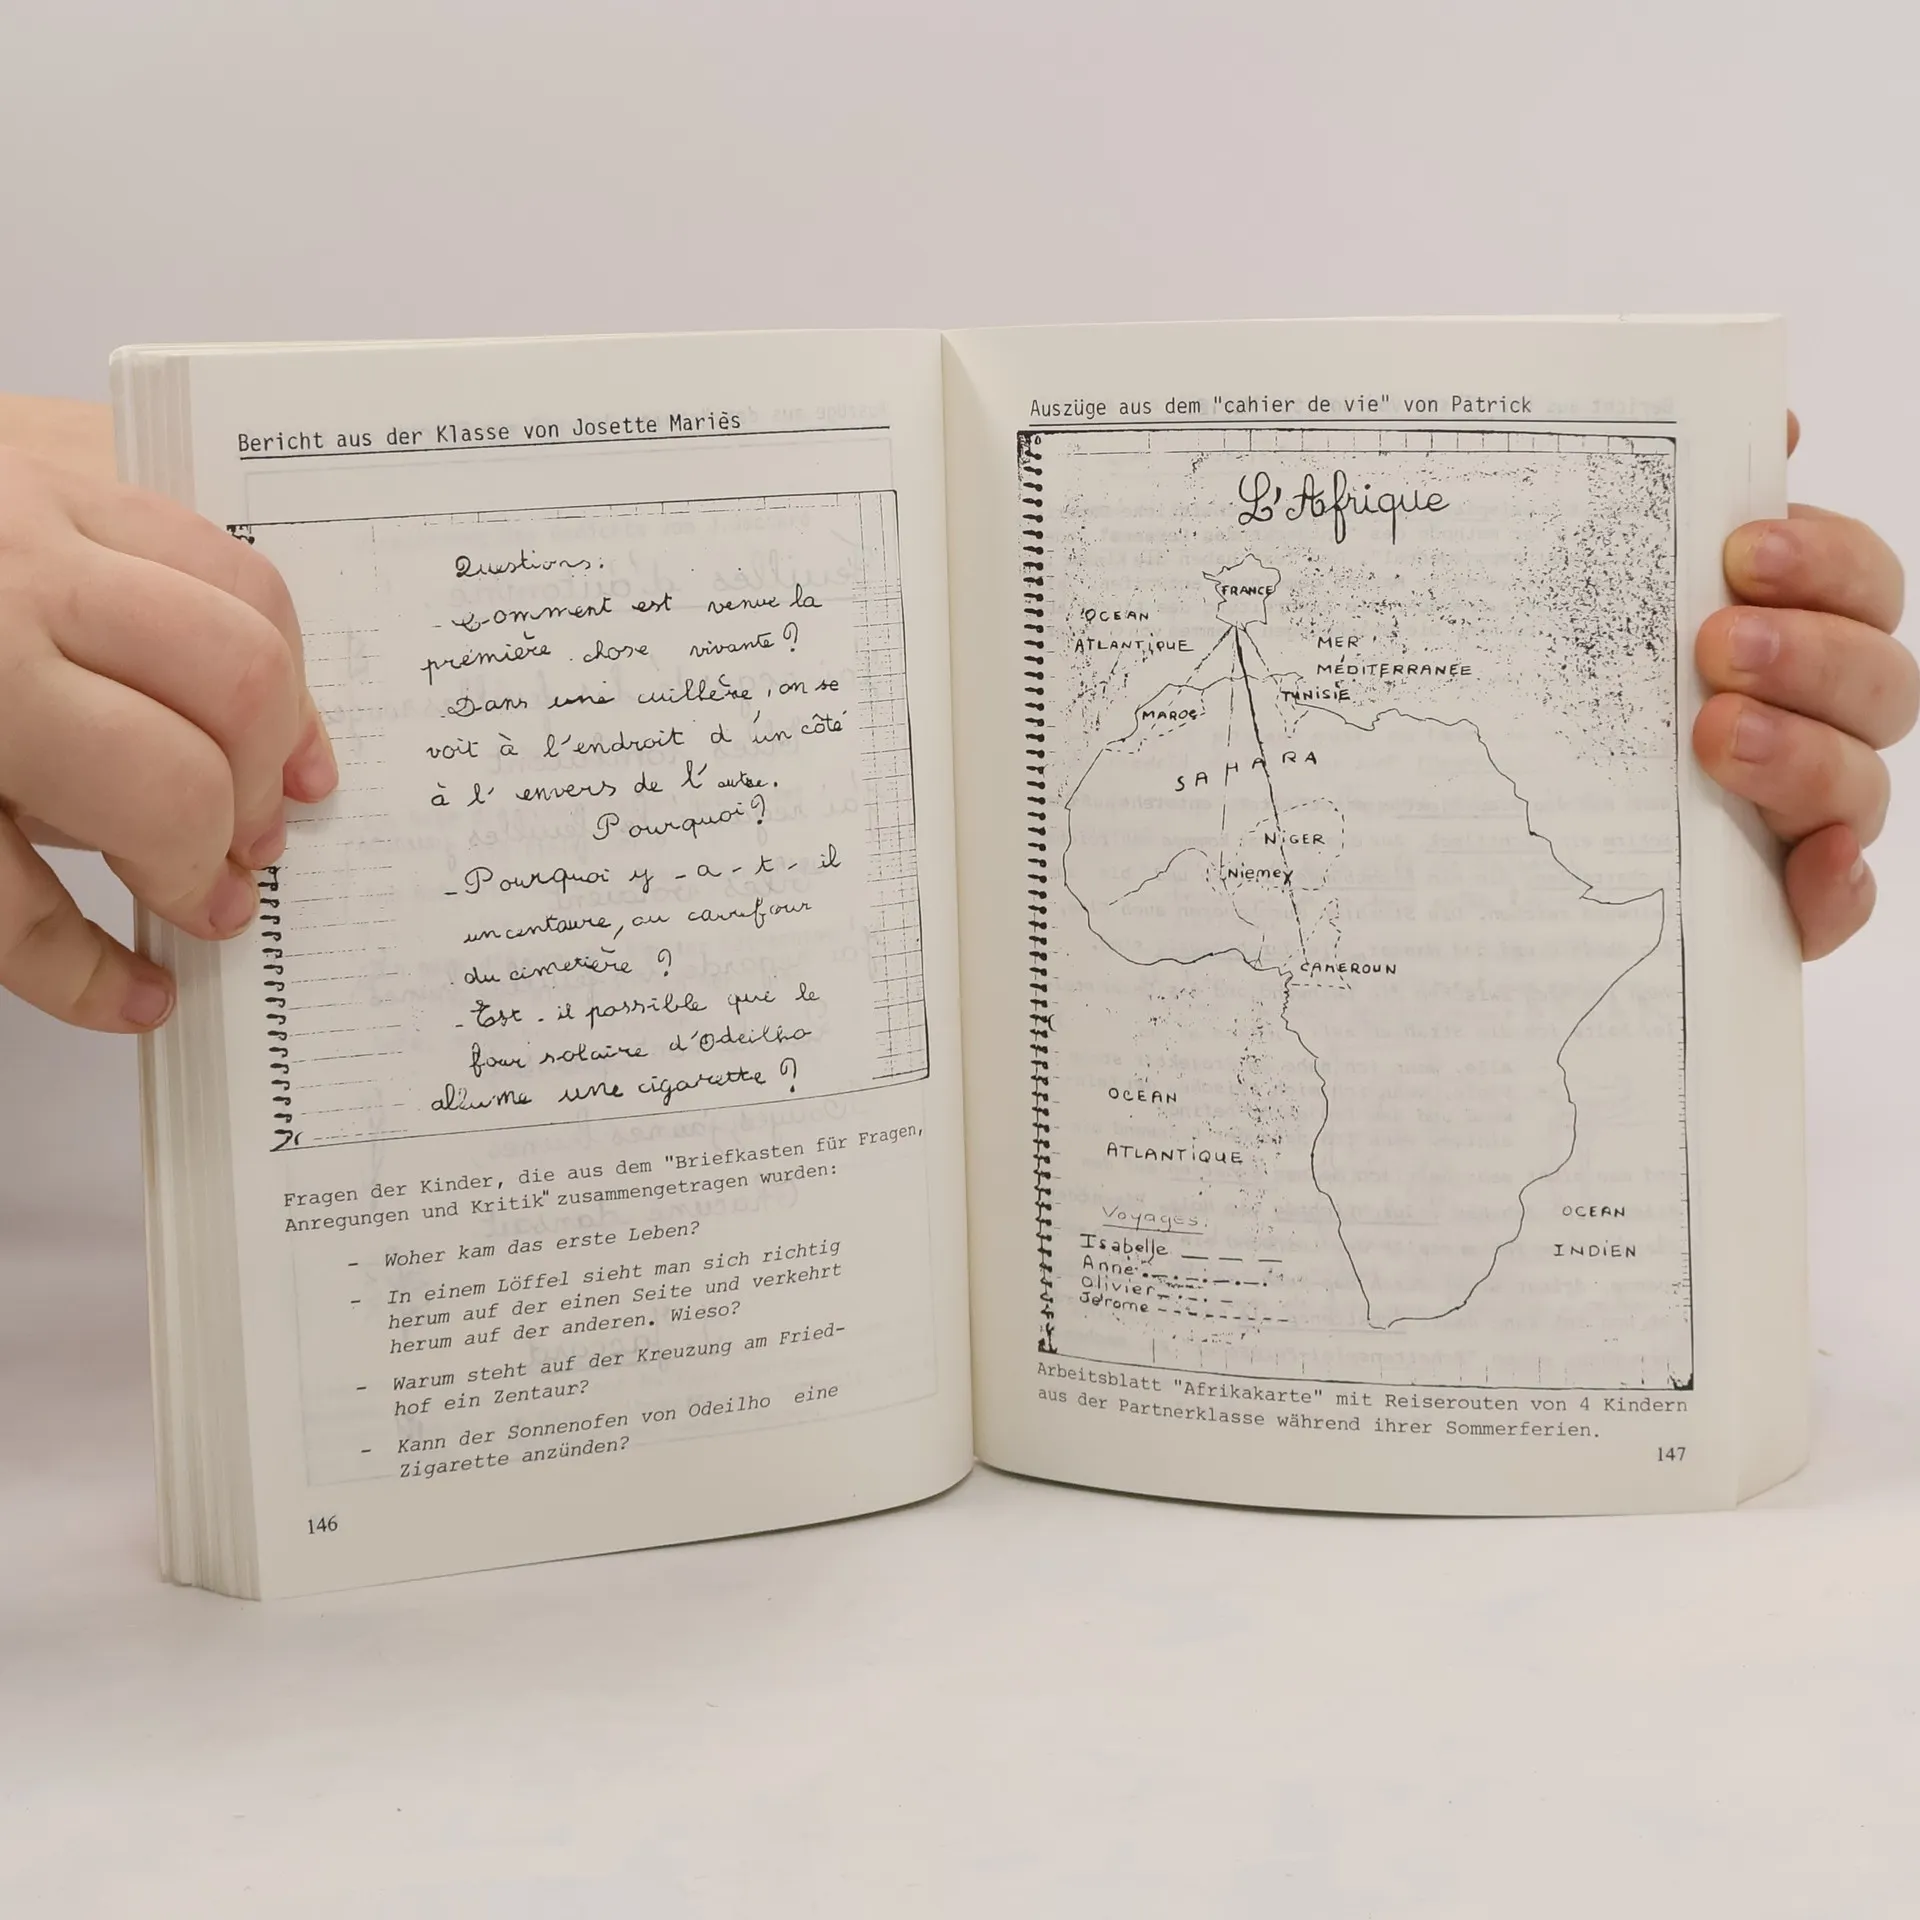 Bericht aus der Klasse von Josette Mariès
Questions:
- Comment est venue la
première chose vivante ?
- Dans une cuillère, on se
voit à l'endroit d'un côté
à l'envers de l'autre.
Pourquoi ?
- Pourquoi y-a-t-il
un centaure, au carrefour
du cimetière ?
- Est-il possible que le
four solaire d'Odeilho
allume une cigarette ?
Fragen der Kinder, die aus dem "Briefkasten für Fragen,
Anregungen und Kritik" zusammengetragen wurden:
- Woher kam das erste Leben?
- In einem Löffel sieht man sich richtig
herum auf der einen Seite und verkehrt
herum auf der anderen. Wieso?
- Warum steht auf der Kreuzung am Fried-
hof ein Zentaur?
- Kann der Sonnenofen von Odeilho eine
Zigarette anzünden?
146
Auszüge aus dem "cahier de vie" von Patrick
L'Afrique
FRANCE
OCEAN
ATLANTIQUE
MER
MÉDITERRANÉE
TUNISIE
MAROC
SAHARA
NIGER
Niemey
CAMEROUN
OCEAN
ATLANTIQUE
Voyages:
Isabelle
Anne
Olivier
Jérome
OCEAN
INDIEN
Arbeitsblatt "Afrikakarte" mit Reiserouten von 4 Kindern
aus der Partnerklasse während ihrer Sommerferien.
147